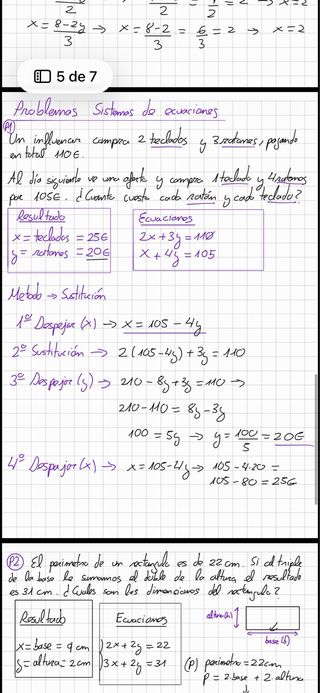 2
2
2
x = 8-2y/3 → x = 8-2/3 = 6/3 = 2 → x = 2
5 de 7
Problemas Sistemas de ecuaciones
P1
Un influencer compra 2 teclados y 3 ratones, pagando
en total 110€.
Al día siguiente ve una oferta y compra 1 teclado y 4 ratones
por 105€. ¿Cuánto cuesta cada ratón y cada teclado?
Resultado
x = teclados = 25€
y = ratones = 20€
Ecuaciones
2x + 3y = 110
x + 4y = 105
Metodo → Sustitución
1º Despejar (x) → x = 105 - 4y
2º Sustitución → 2(105-4y) + 3y = 110
3º Despejar (y) → 210 - 8y + 3y = 110 →
210 - 110 = 8y - 3y
100 = 5y → y = 100/5 = 20€
4º Despejar (x) → x = 105 - 4y → 105 - 4·20 =
105 - 80 = 25€
P2 El perimetro de un rectangulo es de 22 cm. Si al triple
de la base le sumamos el doble de la altura, el resultado
es 31 cm. ¿Cuáles son las dimensiones del rectangulo?
Resultado
x = base = 9 cm
y = altura = 2 cm
Ecuaciones
2x + 2y = 22
3x + 2y = 31
altura(h)
base(b)
(P) perimetro = 22cm
P = 2·base + 2·altura